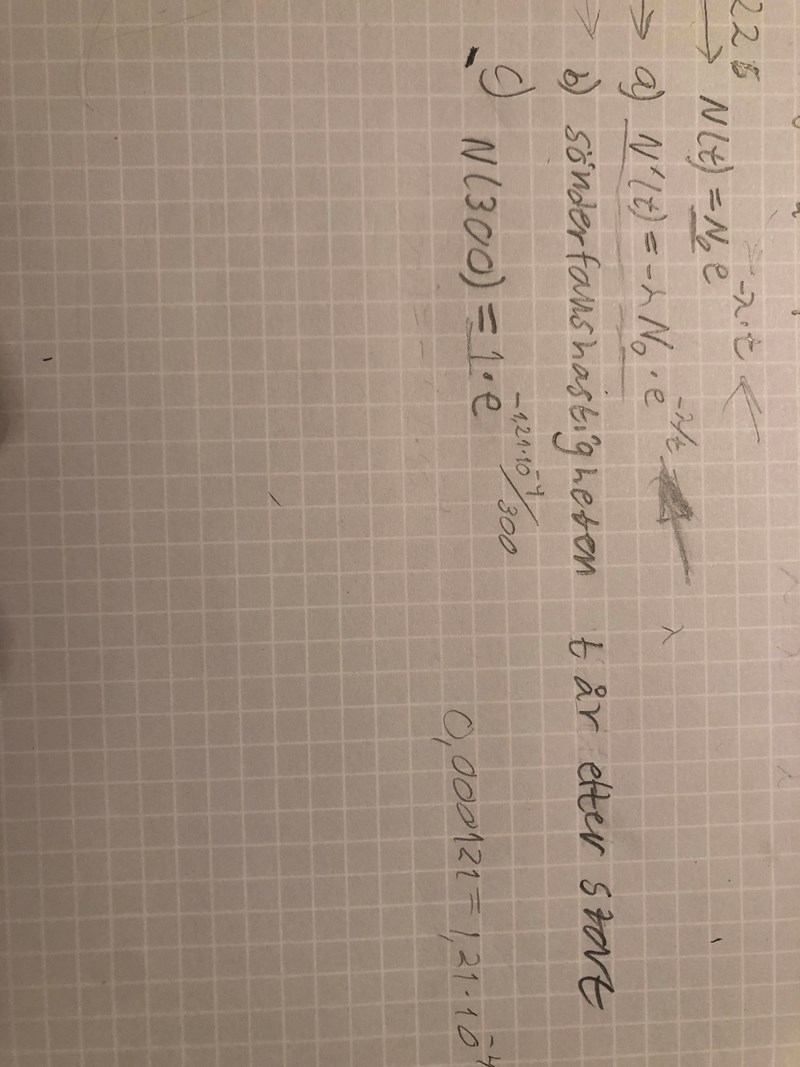 228
→ N(t) = N₀e^(-λ·t) ←
→ a) N'(t) = -λN₀·e^(-λ/t) ← λ
→ b) sönderfallshastigheten t år efter start
c) N(300) = 1·e^(-1,21·10⁻⁴/300)
0,000121 = 1,21·10⁻⁴